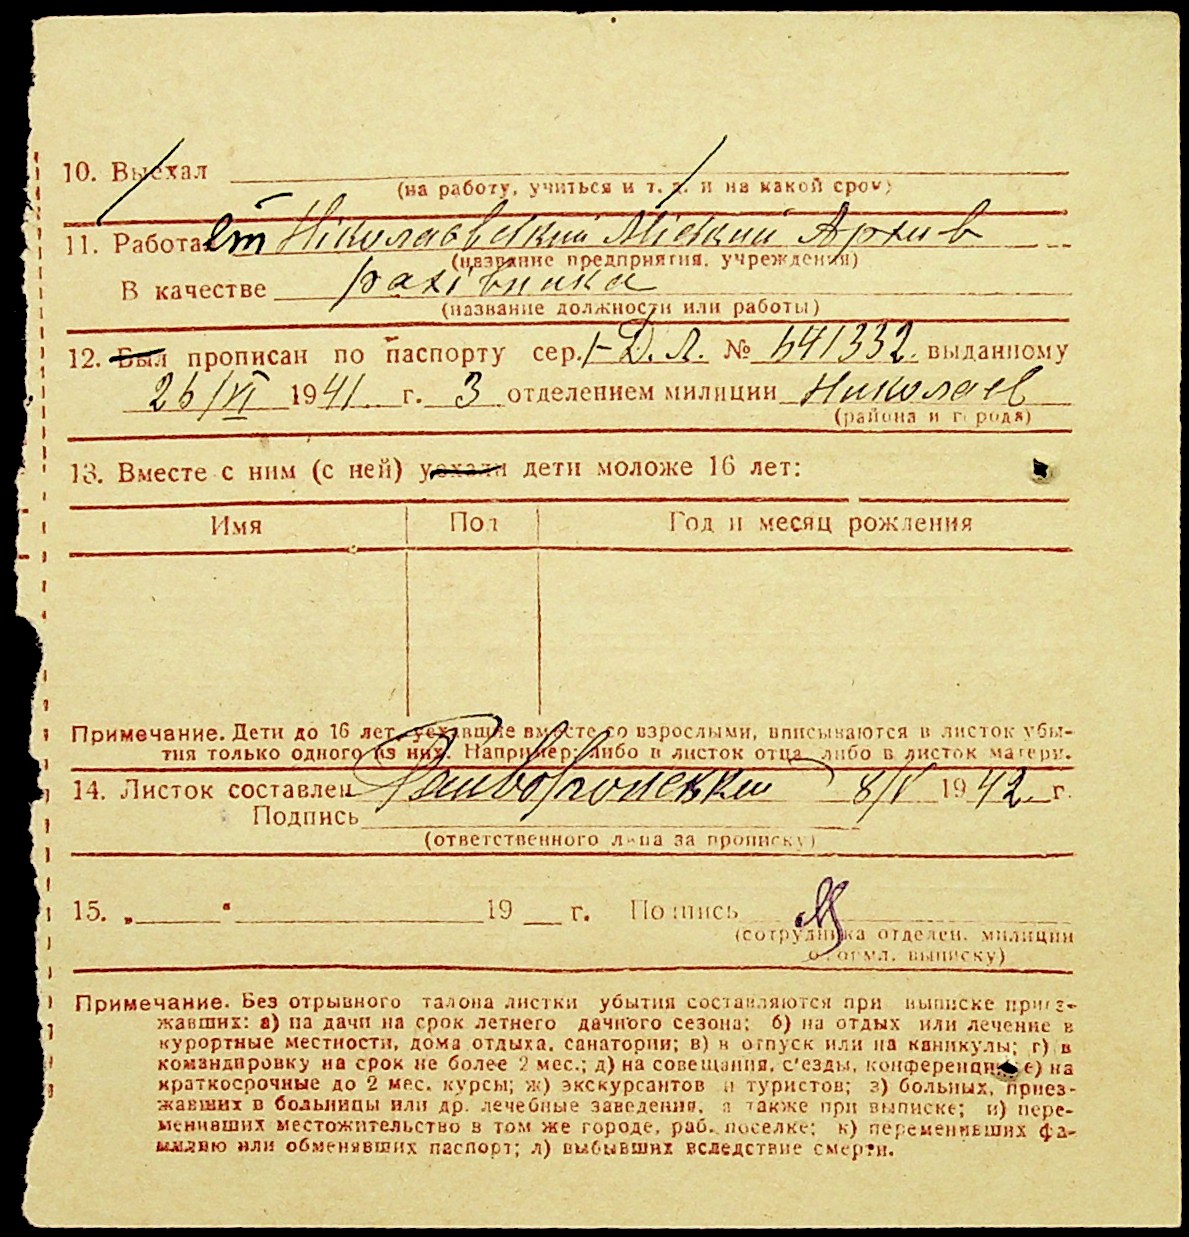 10. Выехал
(на работу, учиться и т. д. и на какой срок)
11. Работает Ніколаевський Міський Архив
(название предприятия, учреждения)
В качестве рахівника
(название должности или работы)
12. Был прописан по паспорту сер. I-Д.Л. № 641332. выданному
26/VI 1941 г. 3 отделением милиции Николаев
(района и города)
13. Вместе с ним (с ней) уехали дети моложе 16 лет:
Имя Пол Год и месяц рождения
Примечание. Дети до 16 лет, уехавшие вместе со взрослыми, вписываются в листок убы-
тия только одного из них. Например: либо в листок отца либо в листок матери.
14. Листок составлен 8/V 1942 г.
Подпись
(ответственного лица за прописку)
15. „ “ 19 г. Подпись
(сотрудника отделен. милиции
оформл. выписку)
Примечание. Без отрывного талона листки убытия составляются при выписке приез-
жавших: а) на дачи на срок летнего дачного сезона; б) на отдых или лечение в
курортные местности, дома отдыха, санатории; в) в отпуск или на каникулы; г) в
командировку на срок не более 2 мес.; д) на совещания, с'езды, конференции е) на
краткосрочные до 2 мес. курсы; ж) экскурсантов и туристов; з) больных, приез-
жавших в больницы или др. лечебные заведения, а также при выписке; и) пере-
менивших местожительство в том же городе, раб. поселке; к) переменивших фа-
милию или обменявших паспорт; л) выбывших вследствие смерти.